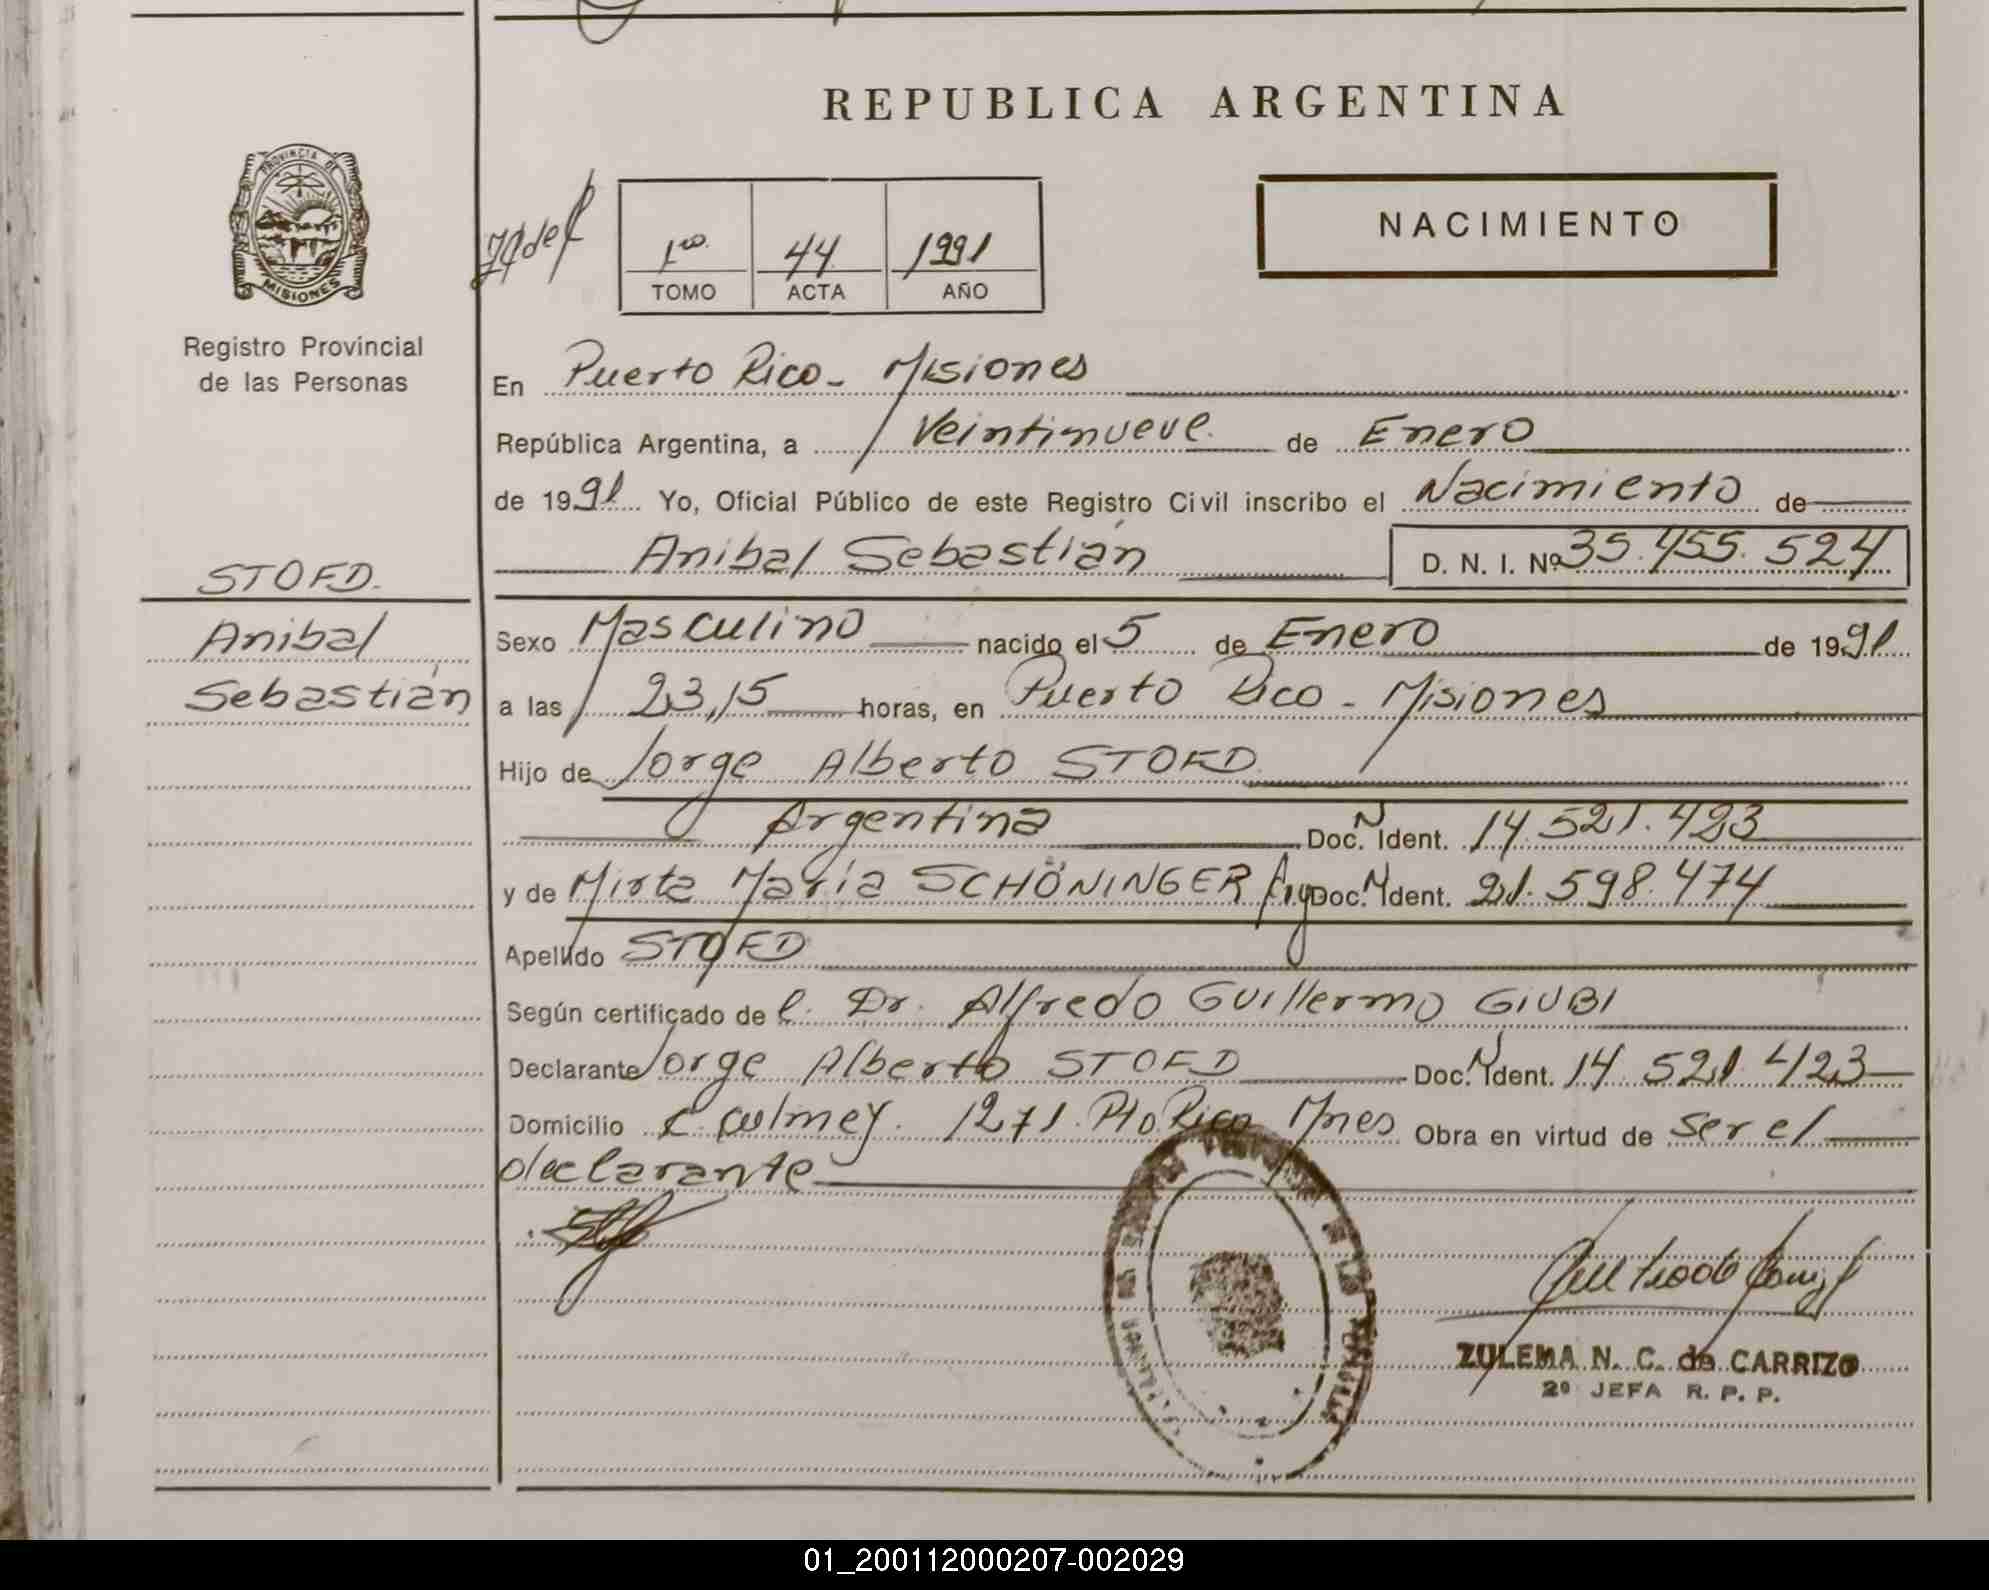 REPUBLICA ARGENTINA
PROVINCIA DE
MISIONES
Registro Provincial
de las Personas
1ro. 44 1991
TOMO ACTA AÑO
NACIMIENTO
En Puerto Rico - Misiones
República Argentina, a Veintinueve de Enero
de 1991 Yo, Oficial Público de este Registro Civil inscribo el Nacimiento de
Anibal Sebastián D. N. I. Nº 35.455.524
STOFD.
Anibal
Sebastián
Sexo Masculino nacido el 5 de Enero de 1991
a las 23,15 horas, en Puerto Rico - Misiones
Hijo de Jorge Alberto STOFD
Argentina Doc. N Ident. 14.521.423
y de Mirta María SCHÖNINGER Arg Doc. N Ident. 21.598.474
Apellido STOFD
Según certificado de l. Dr. Alfredo Guillermo GIUBI
Declarante Jorge Alberto STOFD Doc. N Ident. 14.521.423
Domicilio C. Culmey. 1271. Pto Rico Mnes Obra en virtud de ser el
declarante
ZULEMA N. C. de CARRIZO
2º JEFA R. P. P.
01_200112000207-002029